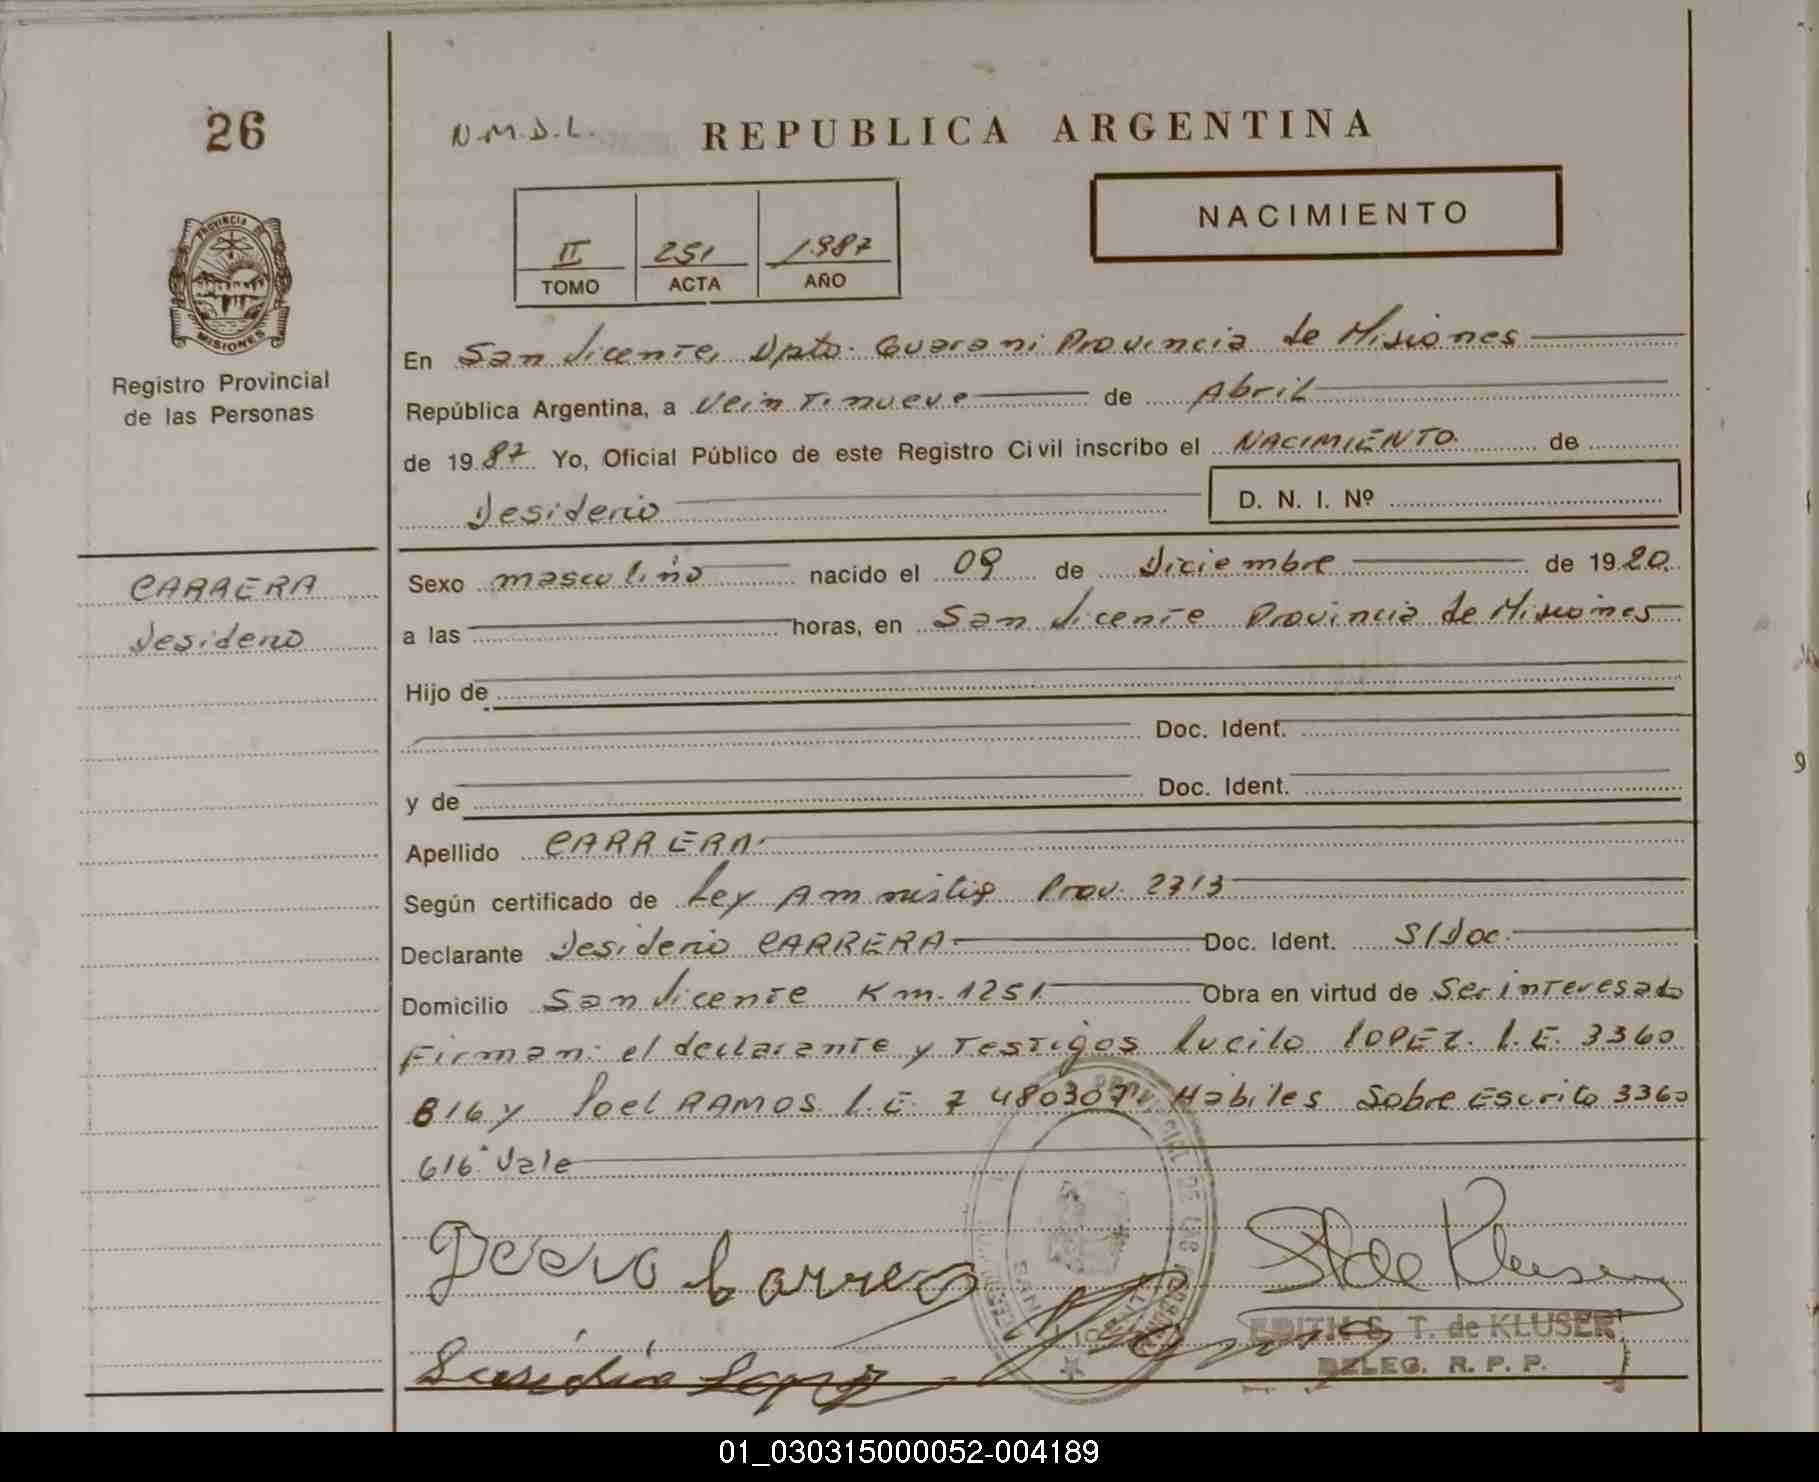 26
N.M.D.L.
REPUBLICA ARGENTINA
NACIMIENTO
II 251 1987
TOMO ACTA AÑO
PROVINCIA DE MISIONES
Registro Provincial
de las Personas
En San Vicente, Dpto. Guarani Provincia de Misiones
República Argentina, a Veintinueve de Abril
de 1987 Yo, Oficial Público de este Registro Civil inscribo el NACIMIENTO de
Desiderio D. N. I. Nº
CARRERA
Desiderio
Sexo masculino nacido el 09 de Diciembre de 1920
a las horas, en San Vicente Provincia de Misiones
Hijo de
Doc. Ident.
y de Doc. Ident.
Apellido CARRERA
Según certificado de Ley Amnistia Prov. 2713
Declarante Desiderio CARRERA Doc. Ident. S/Doc.
Domicilio San Vicente Km. 1251 Obra en virtud de Ser interesado
Firman: el declarante y Testigos Lucilo LOPEZ. L.E. 3360
616 y Joel RAMOS L.E. 7 480307 Habiles Sobre Escrito 3360
616 Vale
EDITH S. T. de KLUSER
DELEG. R. P. P.
01_030315000052-004189